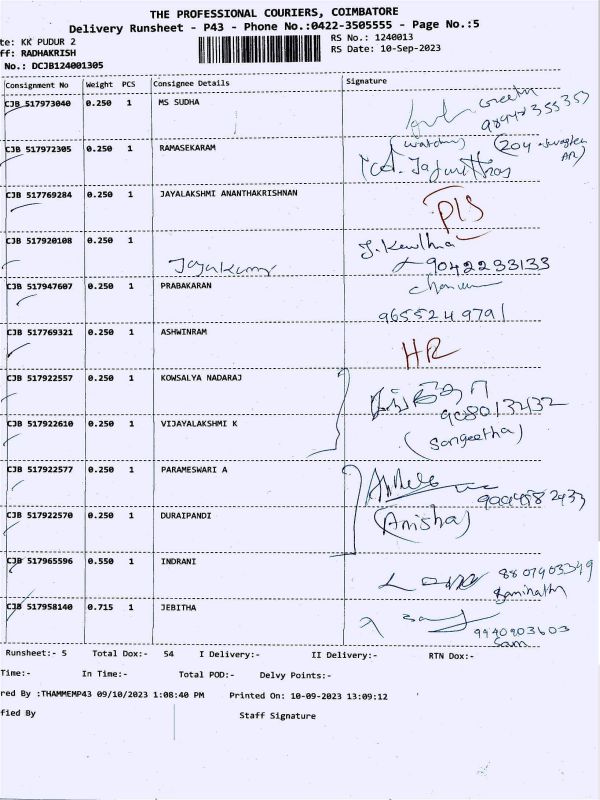 THE PROFESSIONAL COURIERS, COIMBATORE
Delivery Runsheet - P43 - Phone No.:0422-3505555 - Page No.:5
te: KK PUDUR 2 RS No.: 1240013
ff: RADHAKRISH RS Date: 10-Sep-2023
No.: DCJB124001305
Consignment No Weight PCS Consignee Details Signature
CJB 517973040 0.250 1 MS SUDHA Geetha
CJB 517972305 0.250 1 RAMASEKARAM (204
CJB 517769284 0.250 1 JAYALAKSHMI ANANTHAKRISHNAN PIS
CJB 517920108 0.250 1 Jayakumar 9042233133
CJB 517947607 0.250 1 PRABAKARAN 9655249791
CJB 517769321 0.250 1 ASHWINRAM HR
CJB 517922557 0.250 1 KOWSALYA NADARAJ
CJB 517922610 0.250 1 VIJAYALAKSHMI K (Sangeetha)
CJB 517922577 0.250 1 PARAMESWARI A
CJB 517922570 0.250 1 DURAIPANDI (Anisha)
CJB 517965596 0.550 1 INDRANI 8807403349
CJB 517958140 0.715 1 JEBITHA 9940203603
Sam
Runsheet:- 5 Total Dox:- 54 I Delivery:- II Delivery:- RTN Dox:-
Time:- In Time:- Total POD:- Delvy Points:-
red By :THAMMEMP43 09/10/2023 1:08:40 PM Printed On: 10-09-2023 13:09:12
fied By Staff Signature